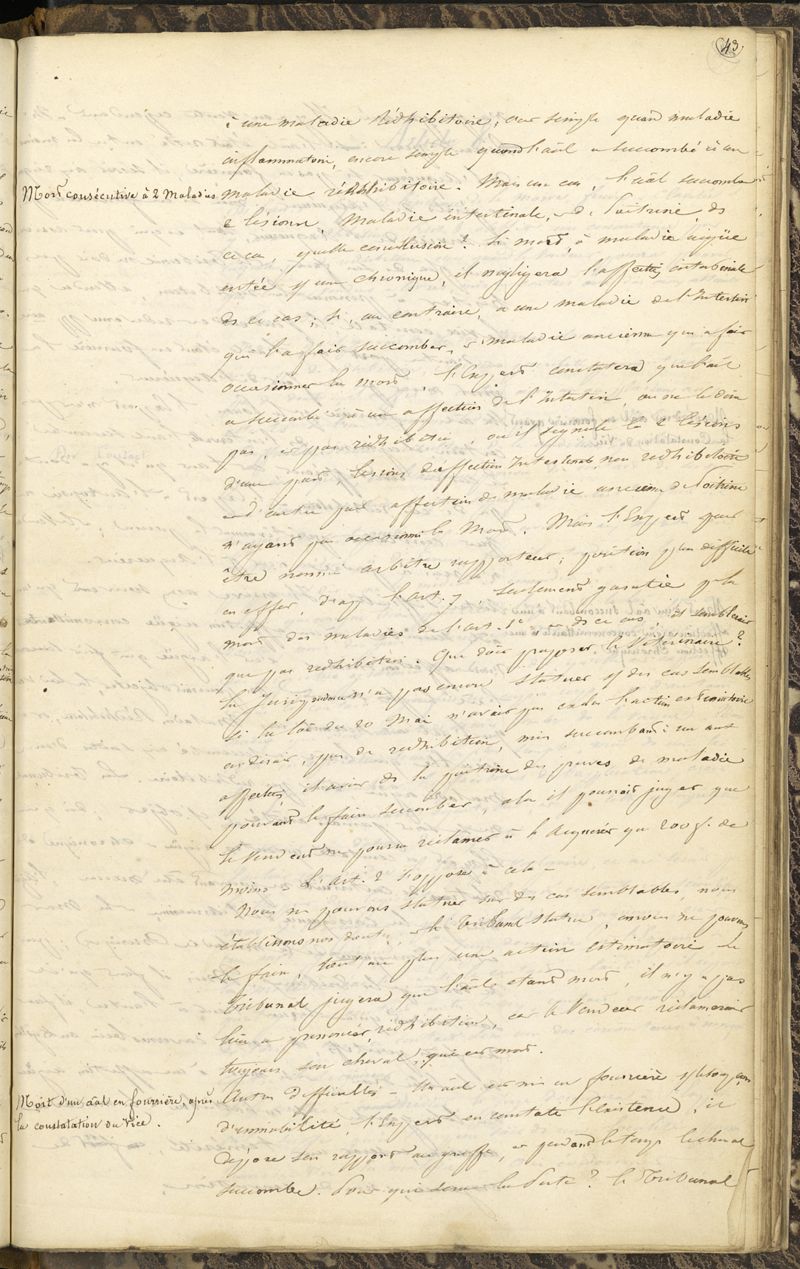 43
à une maladie Rédhibitoire, cas simple quand maladie
inflammatoire, encore simple quand l'aâl a succombé à une
Mort consécutive à 2 Maladies
maladie rédhibitoire. Mais un cas, l'aâl succombe
2 lésions, Maladie intestinale, et de Poitrine, ds
ce cas, quelle conclusion? Si mort, à maladie aigüe
entée sur une chronique, il négligera l'affection intestinale
ds ce cas; si, au contraire, a une maladie de l'Intestin
qui l'a fait succomber, et maladie ancienne qui a fait
occasionner la mort, l'Expert constatera que l'aâl
a succombé à une affection de l'Intestin, ou ne le dira
pas, et pas rédhibition, ou il signale les 2 lésions
d'une part lésions d'affection Intestinale non redhibitoire
et d'autre part affection de maladie ancienne de Poitrine
n'ayant pas occasionné la Mort. Mais l'Expert peut
être nommé arbitre rapporteur; position plus difficile
en effet, d'ap. l'art. 7, seulement garantie pr la
mort des maladies de l'art. 1er et ds ce cas, il semblerait
que pas redhibition. Que doit proposer le Vétérinaire?
La Jurisprudence n'a pas encore statuer sur des cas semblables
Si la loi du 20 Mai n'avait pas exclu l'action estimatoire
on dirait, pas de redhibition, mais succombant à une autre
affection, il avait ds la poitrine des preuves de maladie
pouvant le faire succomber, alors il pourrait juger que
le vendeur ne pourra réclamer à l'acquéreur que 200 f. de
moins et l'art. 2 s'oppose à cela -
Nous ne pouvons statuer sur des cas semblables, nous
établissons nos doutes, et le Tribunal statue, nous ne pouvons
le faire, tout au plus une action estimatoire et le
Tribunal jugera que l'aâl étant mort, il n'y a pas
lieu à prononcer rédhibition, car le Vendeur réclamerait
toujours son cheval, qui est mort.
Mort d'un aâl en fourrière, après
la constatation du vice.
Autres difficultés - Un aâl est mis en fourrière
d'immobilité, l'Expert en constate l'existence, il
dépose son rapport au greffe, et pendant le temps le cheval
succombe. Pour qui sera la Perte? le Tribunal